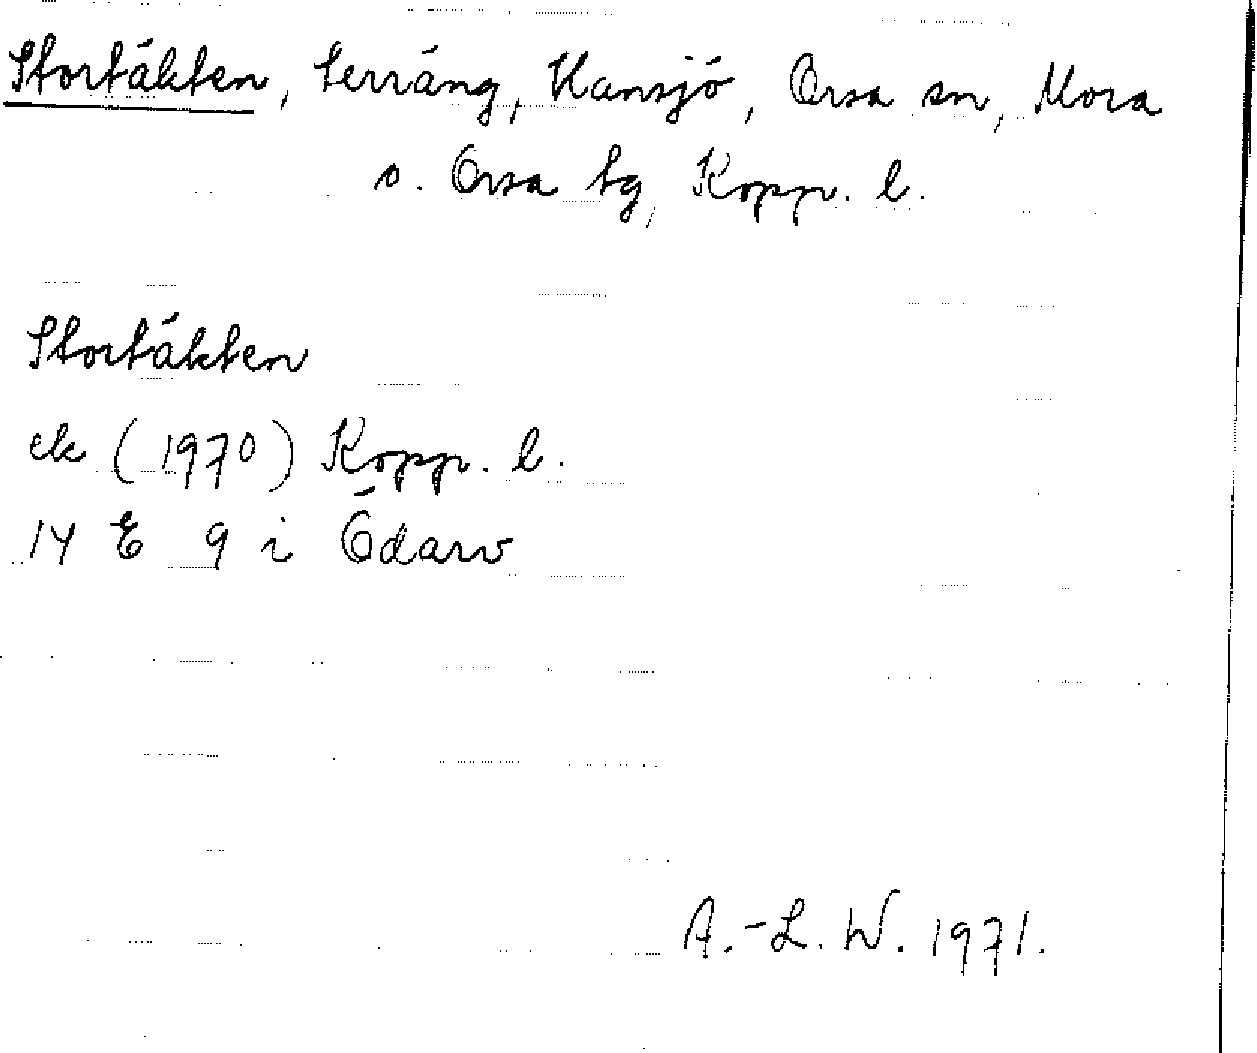 Stortäkten, terräng, Hansjö, Orsa sn, Mora
o. Orsa tg, Kopp. l.
Stortäkten
ek (1970) Kopp. l.
14 E 9 i Ödarv
A.-L. W. 1971.